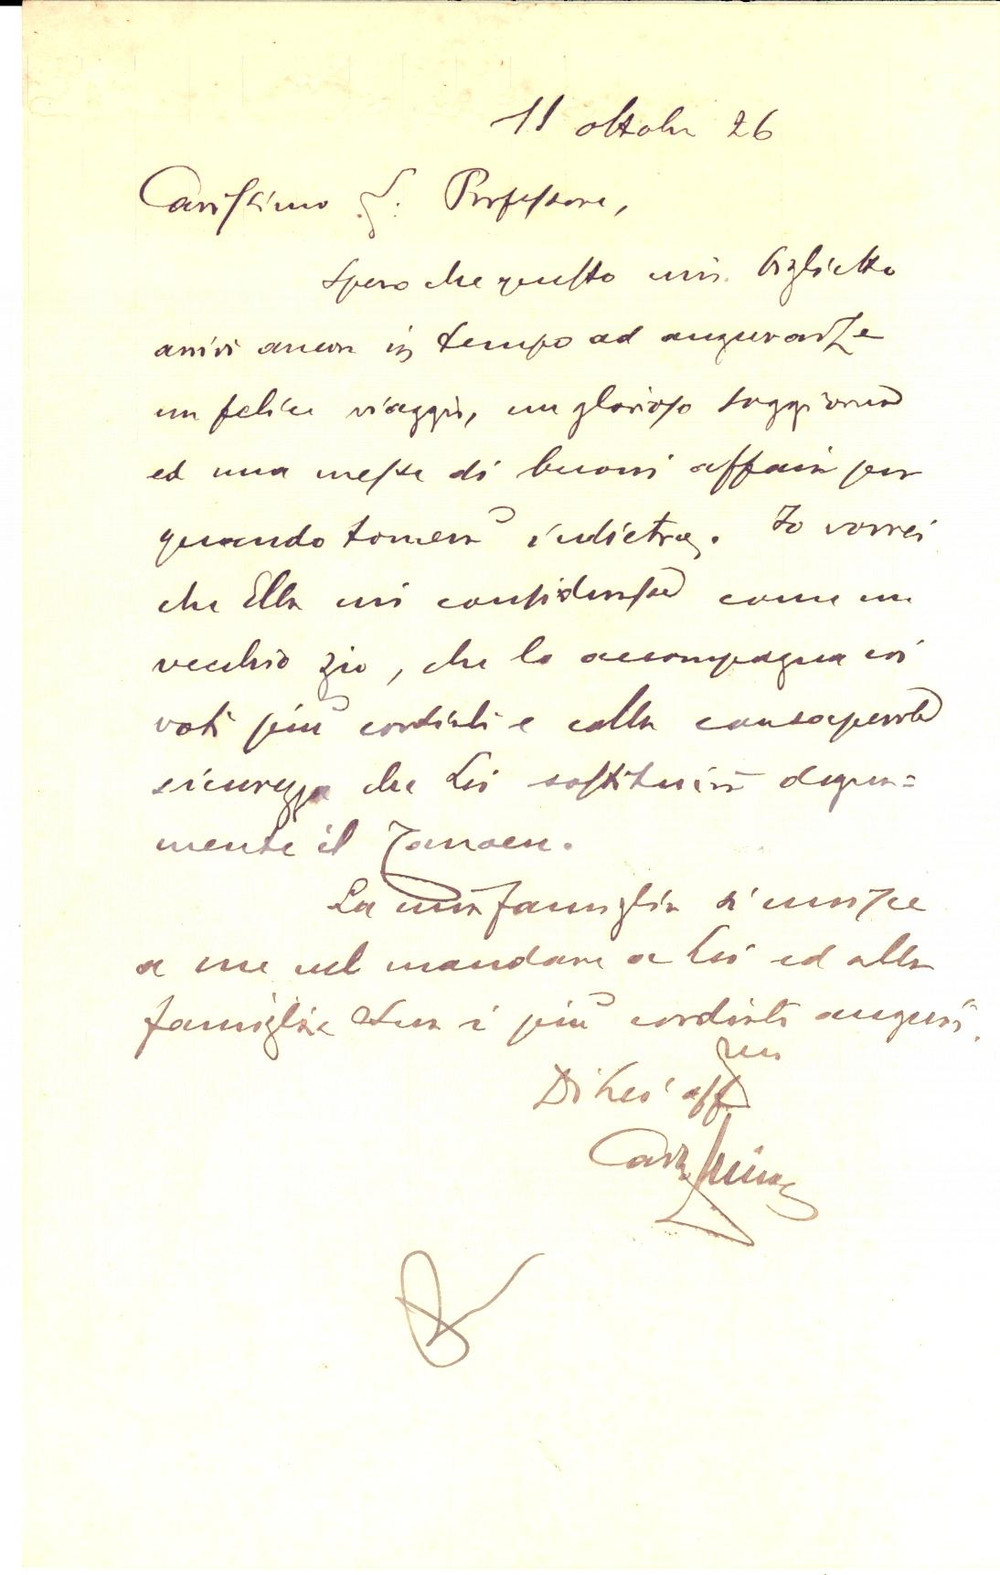 11 ottobre 26
Carissimo S. Professore,
spero che questo mio biglietto
arrivi ancora in tempo ad augurarLe
un felice viaggio, un glorioso soggiorno
ed una messe di buoni affari per
quando tornerà indietro. Io vorrei
che Ella mi considerasse come un
vecchio zio, che lo accompagna coi
voti più cordiali e colla consapevole
sicurezza che Lei sostituirà degna=
mente il
La mia famiglia si unisce
a me nel mandare a Lei ed alla
famiglia Sua i più cordiali auguri.
Di Lei aff